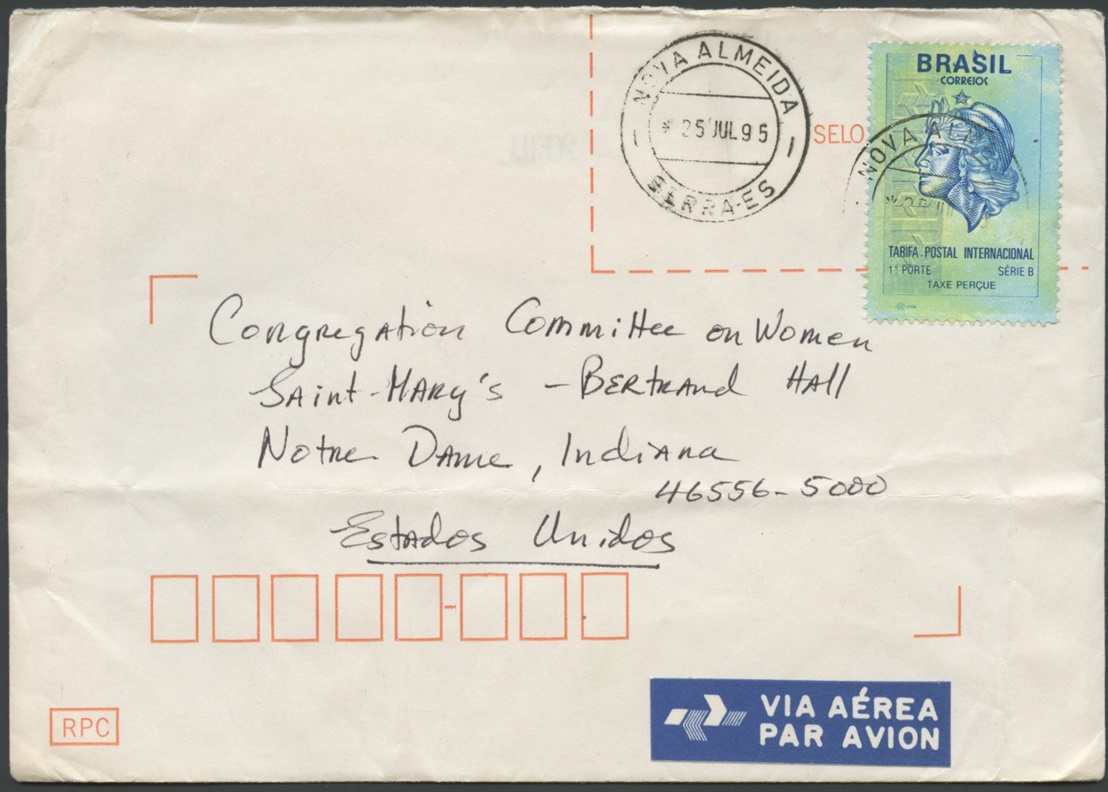 NOVA ALMEIDA
* 25 JUL 95
SERRA-ES
SELO
BRASIL
CORREIOS
NOVA
TARIFA POSTAL INTERNACIONAL
1º PORTE SÉRIE B
TAXE PERÇUE
Congregation Committee on Women
Saint-Mary's - Bertrand Hall
Notre Dame, Indiana
46556-5000
Estados Unidos
RPC
VIA AÉREA
PAR AVION